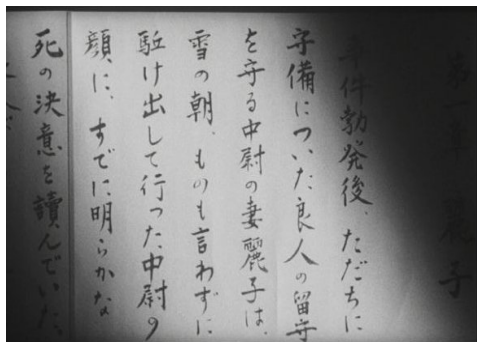 第一章 麗子
事件勃発後、ただちに
守備についた良人の留守
を守る中尉の妻麗子は、
雪の朝、ものも言わずに
駈け出して行った中尉の
顔に、すでに明らかな
死の決意を讀んでいた。